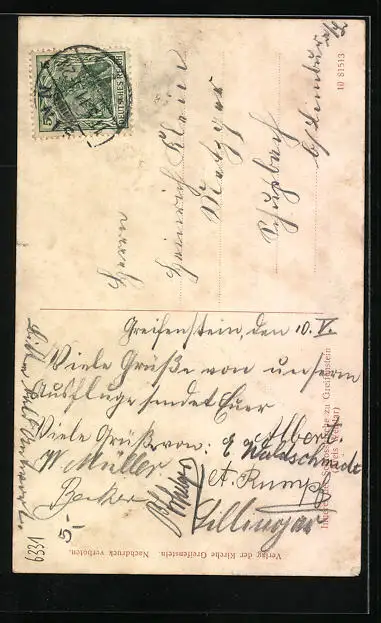 DEUTSCHES REICH
Herrn
Heinrich Klein
Metzger
Schupbach
b/Limburg a/L
10 81513
Greifenstein, den 10. V.
Viele Grüße von unserm
Ausfluge sendet Euer
Albert
Viele Grüße von: E. Waldschmidt
W Müller
A. Rumpf
Becker
Verlag der Kirche Greifenstein. Nachdruck verboten.
zu Greifenstein
(Kreis Wetzlar)
6331
5-